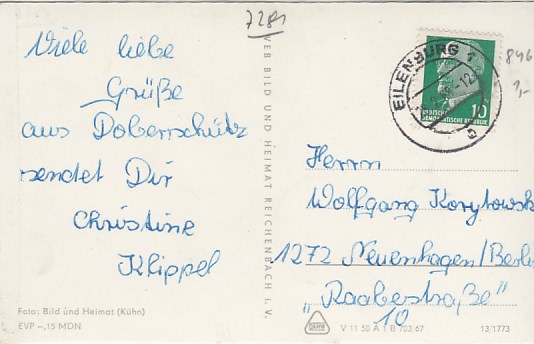 7281
Viele liebe
Grüße
aus Doberschütz
sendet Dir
Christine
Klippel
Foto: Bild und Heimat (Kühn)
EVP –,15 MDN
VEB BILD UND HEIMAT REICHENBACH I. V.
EILENBURG 1
10
DEUTSCHE
DEMOKRATISCHE REPUBLIK
846
1,-
Herrn
Wolfgang Korytowsk
1272 Neuenhagen/Berlin
„Raabestraße"
10
V 11 50 A 1 B 703 67
13/1773